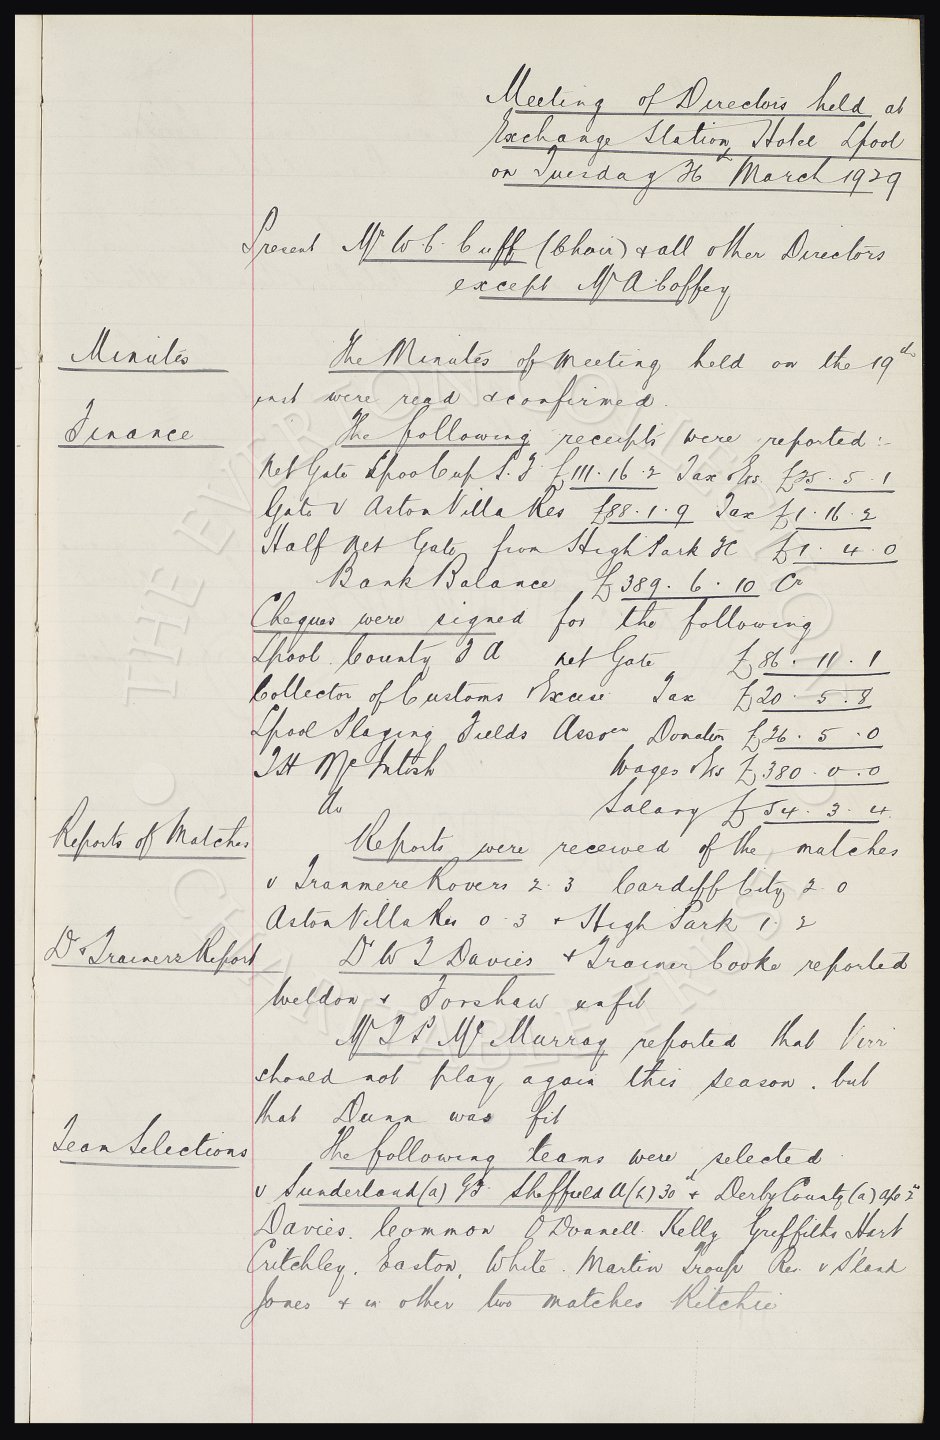 Meeting of Directors held at
Exchange Station Hotel Lpool
on Tuesday 26th March 1929
Present Mr W.C. Cuff (Chair) & all other Directors
except Mr A Coffey
Minutes
The Minutes of meeting held on the 19th
inst were read & confirmed.
Finance
The following receipts were reported:-
Net Gate Lpool Cup S.F £111.16.2 Tax £25.5.1
Gate v Aston Villa Res £88.1.9 Tax £1.16.2
Half Net Gate from High Park FC £1.4.0
Bank Balance £389.6.10 Cr
Cheques were signed for the following
Lpool County F A net Gate £86.11.1
Collector of Customs Excise Tax £20.5.8
Lpool Playing Fields Assocn Donation £26.5.0
T H McIntosh Wages £380.0.0
Do Salary £54.3.4
Reports of Matches
Reports were received of the matches
v Tranmere Rovers 2.3 Cardiff City 2.0
Aston Villa Res 0.3 & High Park 1.2
Dr & Trainers Report
Dr W T Davies & Trainer Cooke reported
Weldon & Forshaw unfit
Mr T P McMurray reported that Virr
should not play again this season. but
that Dunn was fit
Team Selections
The following teams were selected
v Sunderland (a) Sheffield U (h) 30th & Derby County (a) Apl 2nd
Davies. Common O'Donnell. Kelly Griffiths Hart
Critchley. Easton. White. Martin Troup Res. v S'land
Jones & in other two matches Ritchie